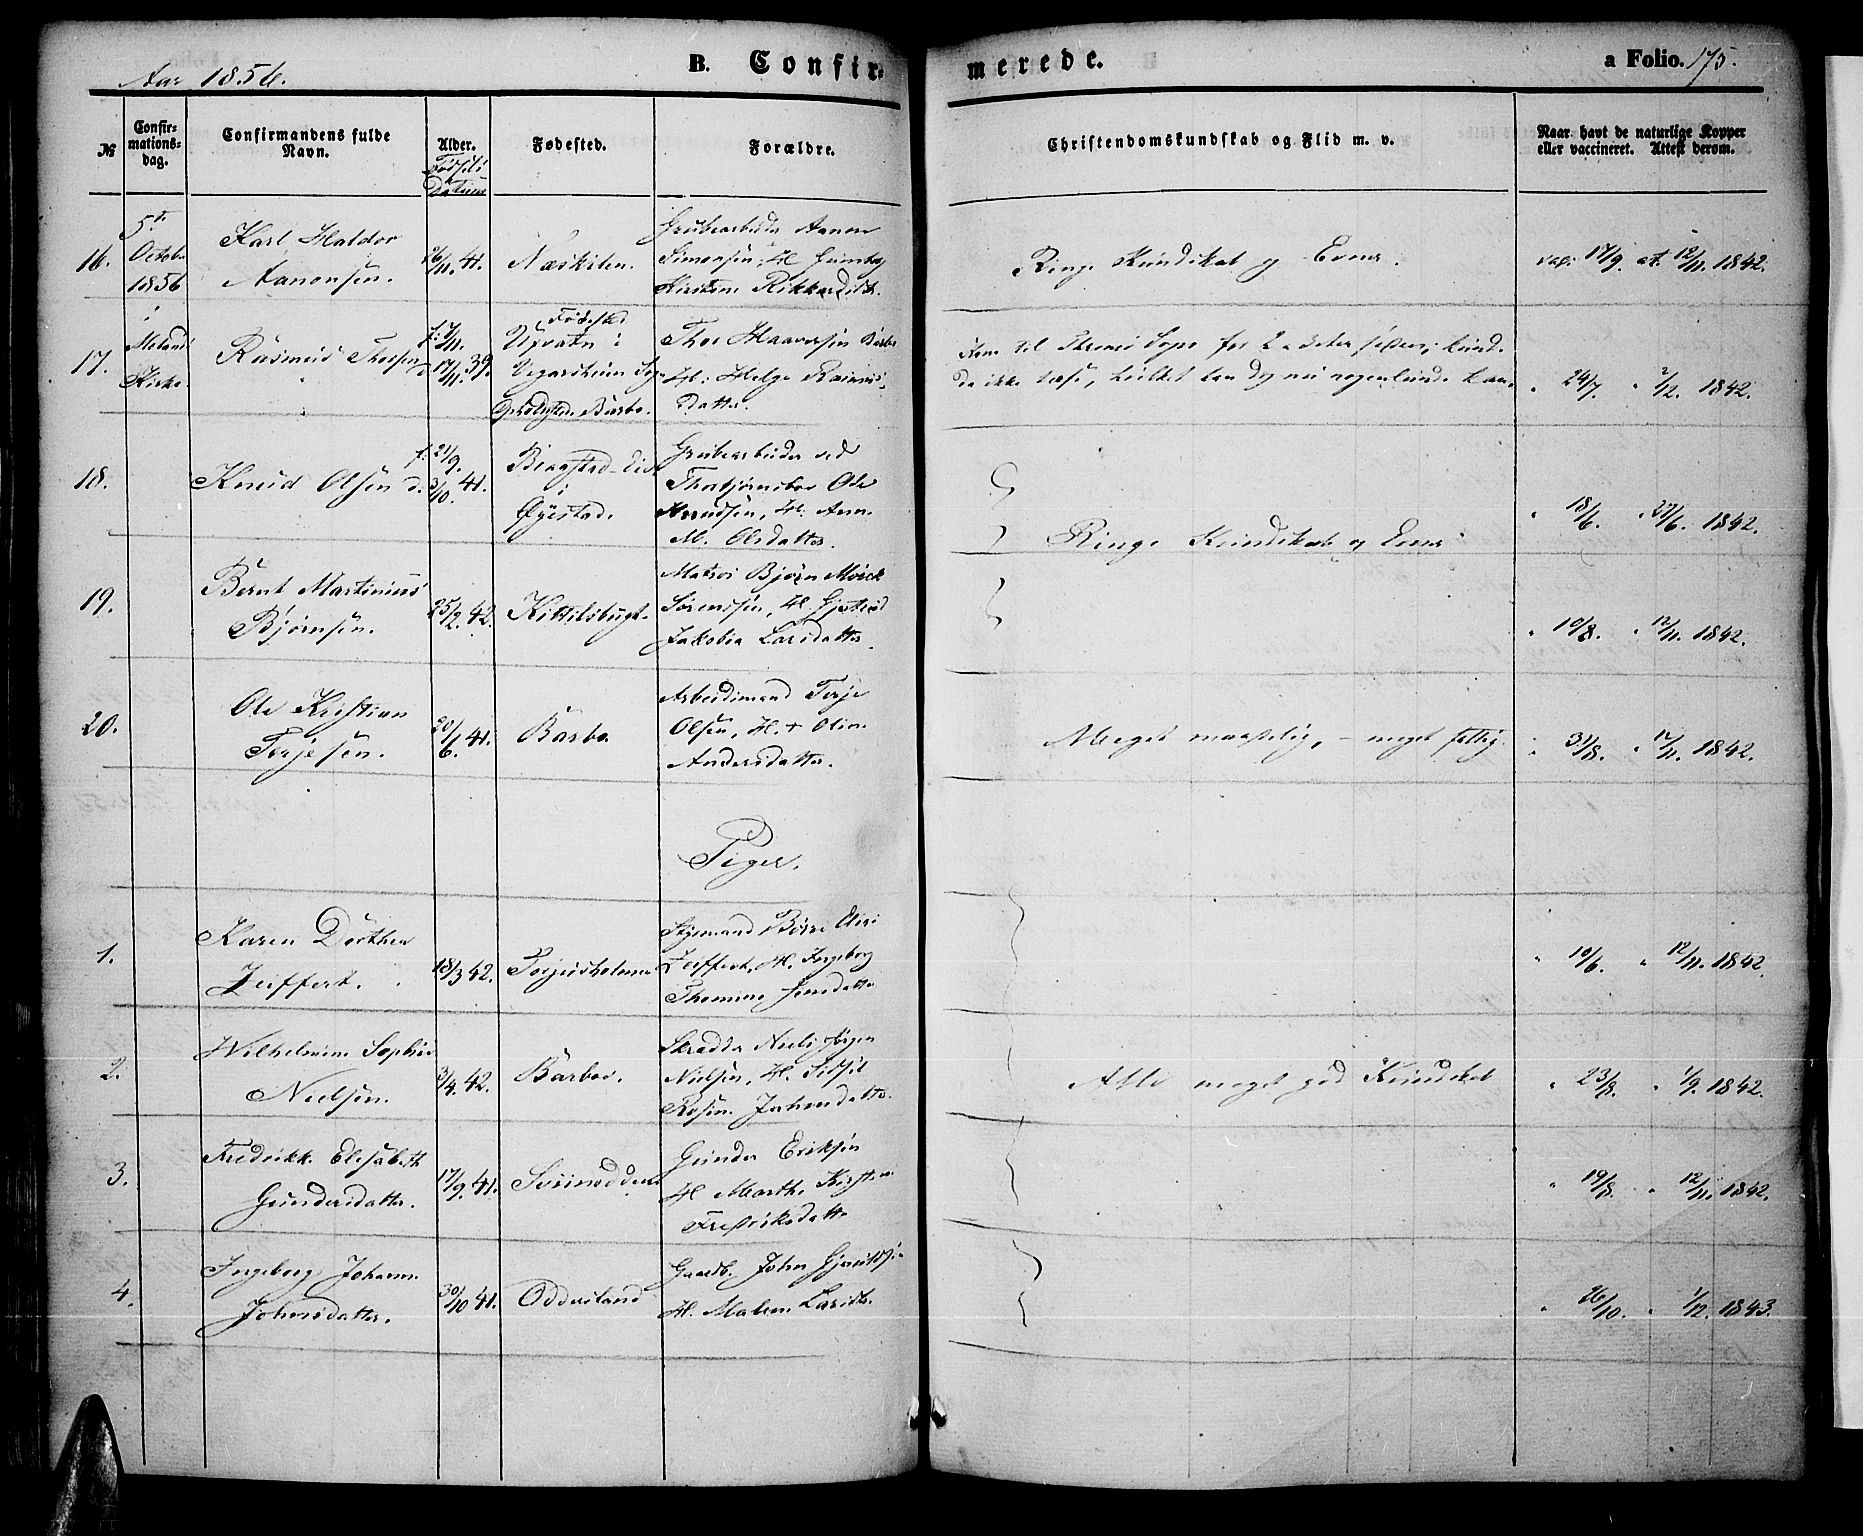 Aar 1856.
B. Confir-
merede.
a Folio. 175.
№
Confir-
mations-
dag.
Confirmandens fulde
Navn.
Alder.
Fødsels
Datum
Fødested.
Forældre.
Christendomskundskab og Flid m. v.
Naar havt de naturlige Kopper
eller vaccineret. Attest derom.
16.
5te
Octob.
1856
i
Molands
Kirke.
Karl Haldor
Aanonsen.
26/11. 41.
Næskilen.
Grubearbeider Aanon
Simonsen, H.
Kirstine Rikkardsdtr.
Ringe Kundskab og Evner.
vac: 17/9. at. 12/11. 1842.
17.
Rasmus Thorsen
f: 7/11.
d. 17/11. 39.
Fødested
Ufvatn i
Vegarsheien
Opholdsted Barbo.
Thor Haaversen Barbo
H: Helge Rasmus-
datter.
Kom til for 2 Aar siden; kund-
de ikke læse, hvilket han dog nu nogenlunde kan.
" 24/7. " 2/12. 1842.
18.
Knud Olsen
f: 21/9.
d. 3/10. 41.
Bringstad
i
Øyestad.
Grubearbeider ved
Thorbjørnsbo Ole
Knudsen, H: Anne
M. Olsdatter.
" 18/6. " 27/6. 1842.
Ringe Kundskab og Evner
19.
Bernt Martinius
Bjørnsen.
25/2. 42.
Kittelsbugt.
Matros Bjørn Mørck
Sørenssen, H. Gjertrud
Jakobia Larsdatter.
" 10/8. " 12/11. 1842.
20.
Ole Kristian
Terjesen.
20/6. 41.
Barbo
Arbeidsmand Terje
Olsen, H. + Oline
Andersdatter.
Meget maadelig, - meget fattig.
" 31/8. " 12/11. 1842.
Piger.
1.
Karen Dorthea
Zeiffert.
18/3 42.
Torjusholmen
Styrmand Børre
Zeiffert, H. Ingeborg
Thomine Jensdatter
" 10/6. " 12/11. 1842
2.
Wilhelmine Sophie
Nielsen.
3/4. 42.
Barbo.
Skredder Niels Jørgen
Nielsen, H. Sidsel
Rosine Johnsdatter.
Alle meget god Kundskab
" 23/8. " 1/9. 1842.
3.
Fredrikke Elisabeth
Gundersdatter.
17/9. 41.
Songe Odden
Gunder Eriksen
H Marthe Kirstine
Fredriksdatter
" 19/8. " 12/11. 1842.
4.
Ingeborg Johanne
Johnsdatter.
30/10 41.
Oddersland
Gaardb. John Gjeruldsen
H. Malene Larsdtr.
" 26/10. " 1/12. 1843.